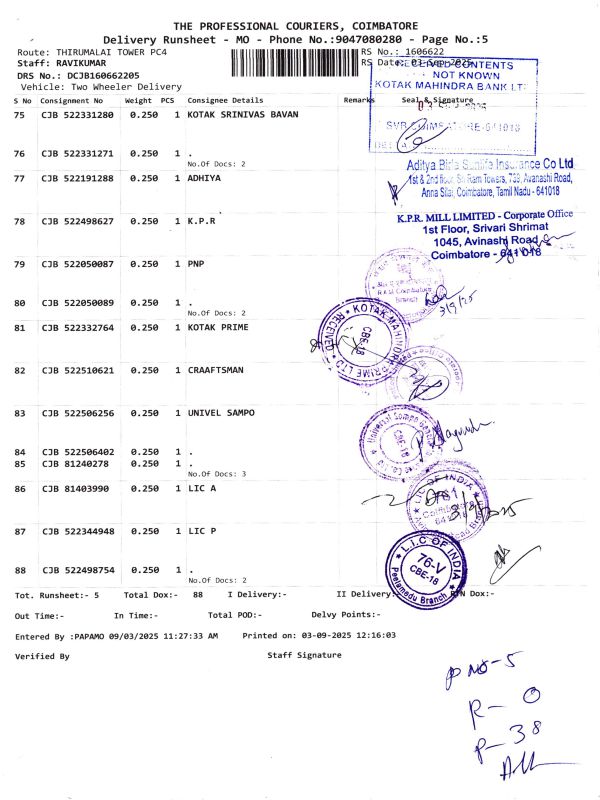 THE PROFESSIONAL COURIERS, COIMBATORE
Delivery Runsheet - MO - Phone No.:9047080280 - Page No.:5
Route: THIRUMALAI TOWER PC4
RS No.: 1606622
Staff: RAVIKUMAR
RS Date: 03-Sep-2025
DRS No.: DCJB160662205
Vehicle: Two Wheeler Delivery
RECEIVED CONTENTS
NOT KNOWN
KOTAK MAHINDRA BANK LT
S No Consignment No Weight PCS Consignee Details Remarks Seal & Signature
75 CJB 522331280 0.250 1 KOTAK SRINIVAS BAVAN
76 CJB 522331271 0.250 1 .
No.Of Docs: 2
77 CJB 522191288 0.250 1 ADHIYA
Aditya Birla Sunlife Insurance Co Ltd
1st & 2nd floor, Sri Ram Towers, 739, Avanashi Road,
Anna Silai, Coimbatore, Tamil Nadu - 641018
78 CJB 522498627 0.250 1 K.P.R
K.P.R. MILL LIMITED - Corporate Office
1st Floor, Srivari Shrimat
1045, Avinashi Road
Coimbatore - 641 018
79 CJB 522050087 0.250 1 PNP
3/9/25
80 CJB 522050089 0.250 1 .
No.Of Docs: 2
81 CJB 522332764 0.250 1 KOTAK PRIME
KOTAK MAHINDRA PRIME LTD
RECEIVED
CBE-18
82 CJB 522510621 0.250 1 CRAAFTSMAN
83 CJB 522506256 0.250 1 UNIVEL SAMPO
CBE-18
84 CJB 522506402 0.250 1 .
85 CJB 81240278 0.250 1 .
No.Of Docs: 3
86 CJB 81403990 0.250 1 LIC A
LIC OF INDIA
87 CJB 522344948 0.250 1 LIC P
L.I.C OF INDIA
76-V
CBE-18
Peelamedu Branch
88 CJB 522498754 0.250 1 .
No.Of Docs: 2
Tot. Runsheet:- 5 Total Dox:- 88 I Delivery:- II Delivery: RTN Dox:-
Out Time:- In Time:- Total POD:- Delvy Points:-
Entered By :PAPAMO 09/03/2025 11:27:33 AM Printed on: 03-09-2025 12:16:03
Verified By Staff Signature
P NO-5
R- 0
P-38